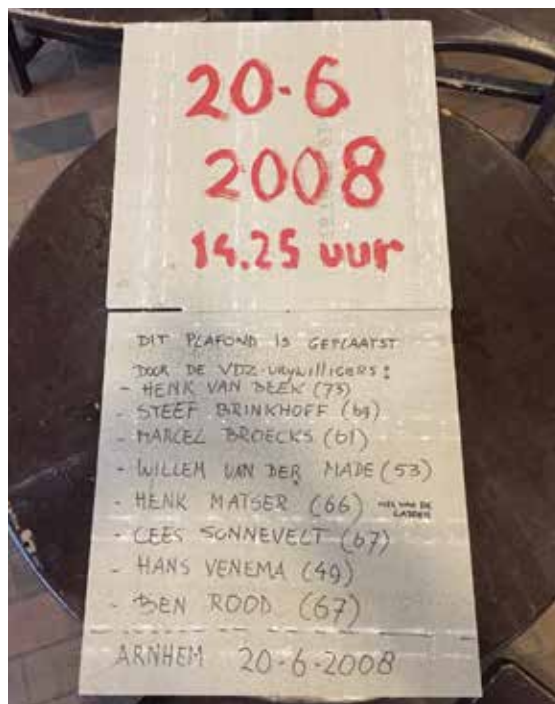 20-6
2008
14.25 uur
DIT PLAFOND IS GEPLAATST
DOOR DE VDZ-VRYWILLIGERS:
- HENK VAN BEEK (73)
- STEEF BRINKHOFF (69)
- MARCEL BROECKS (61)
- WILLEM VAN DER MADE (53)
- HENK MATSER (66) VAN DE LADDER
- CEES SONNEVELT (67)
- HANS VENEMA (49)
- BEN ROOD (67)
ARNHEM 20-6-2008